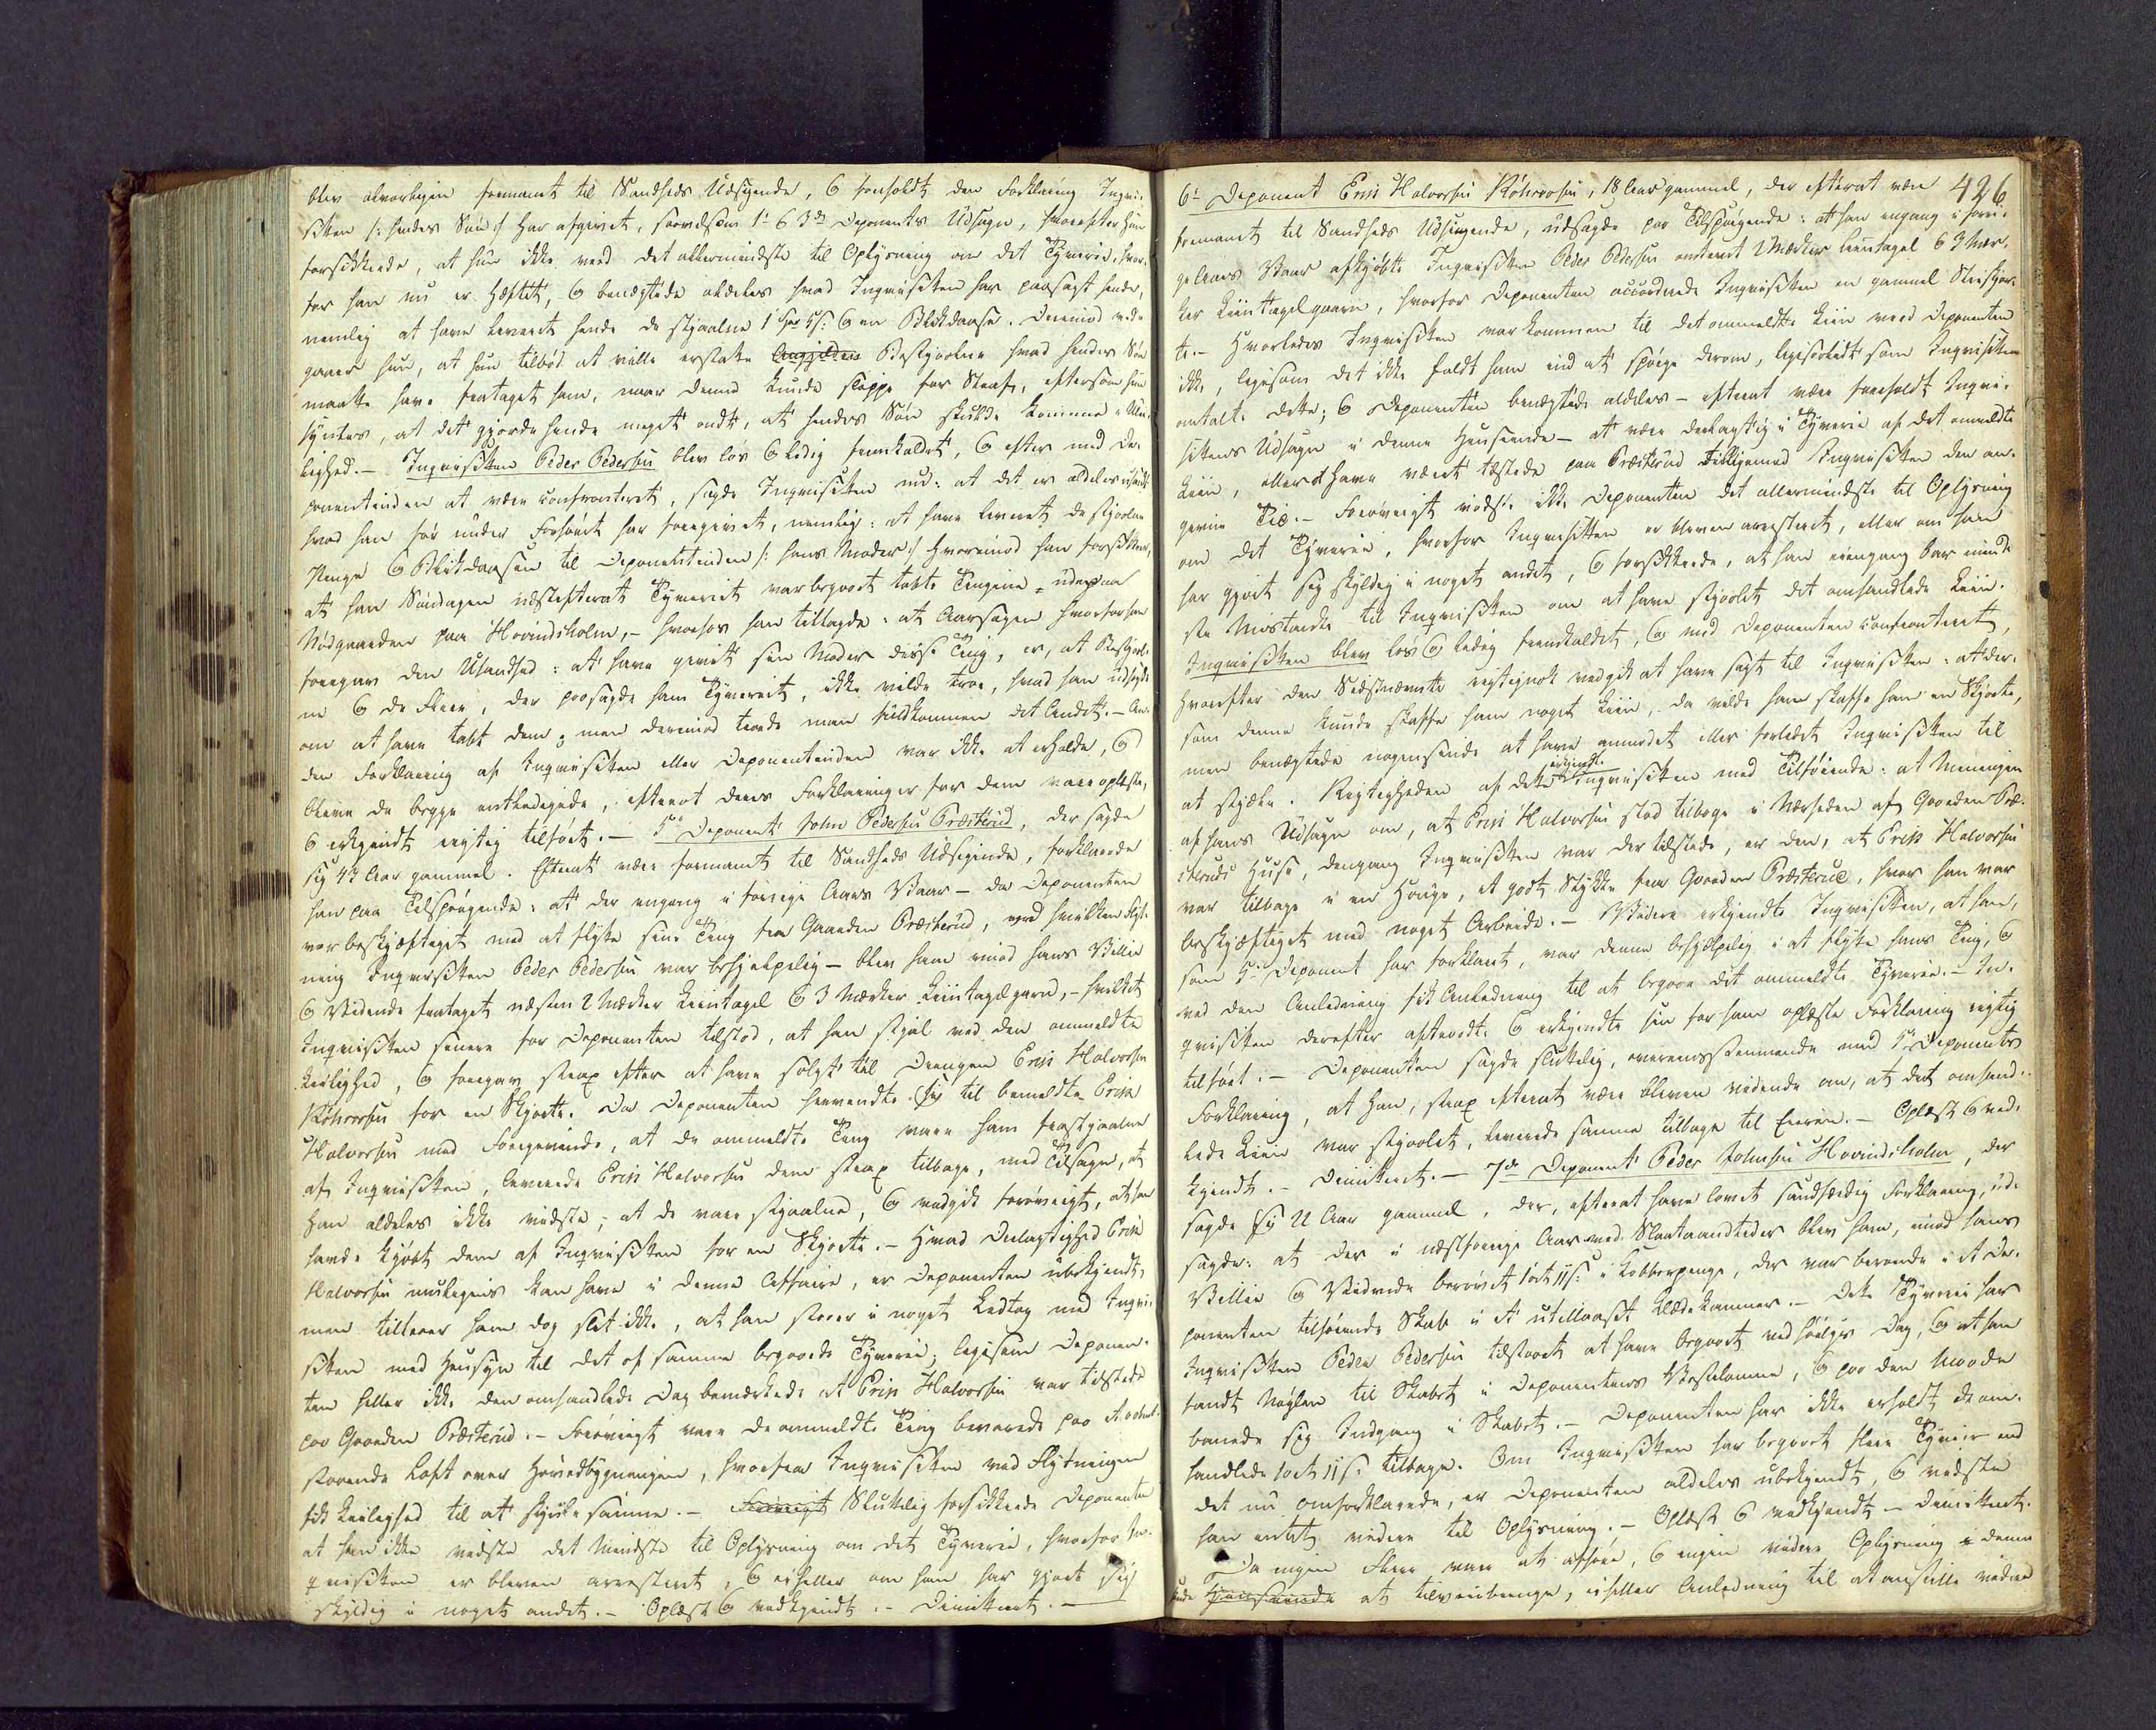 blev alvorligen formanet til Sandheds Udsigende, & foreholdt den Forklaring Inqvi-
siten /: hendes Søn :/ har afgivet, saavelsom 1ste & 3die Deponents Udsagn, hvorefter hun
forsikkrede, at hun ikke veed det allermindste til Oplysning om det Tyverie, hvor-
for han nu er hæftet, & benægtede aldeles hvad Inqvisiten har paasagt hende,
nemlig at have leveret hende de stjaalne 1 Spd & en Blikdaase. Derimod ved-
gaaer hun, at hun tilbød at ville erstatte Angjelden Bestjaalne hvad hendes Søn
maatte have frataget ham, naar denne kunde slippe for Straf, eftersom hun
syntes, at det gjorde hende meget ondt, at hendes Søn skulde komme i Ulei-
lighed. - Inqvisiten Peder Pedersen blev løs & ledig fremkaldet, & efter med De-
ponentinden at være confronteret, sagde Inqvisiten nu: at det er aldeles usandt
hvad han før under Forhøret har foregivet, nemlig: at have leveret de stjaalne
Penge & Blikdaasen til Deponentinden /: hans Moder :/ hvorimod han forsikkrer,
at han Søndagen næstefterat Tyveriet var begaaet tabte Pengene
paa Hovindsholm, - hvorhos han tillagde: at Aarsagen hvorfor han
foregav den Usandhed: at have givet sin Moder disse Ting, er, at Bestjaal-
ne & de Flere, der paasagde ham Tyveriet, ikke vilde troe, hvad han udsagde
om at have tabt dem; men derimod troede man fuldkommen det Andet. - An-
den Forklaring af Inqvisiten eller Deponentinden var ikke at erholde, &
bleve de begge entledigede, efterat deres Forklaringer for dem vare oplæste,
& erkjendt rigtig tilført. - 5te Deponent John Pedersen Præsterud, der sagde
sig 47 Aar gammel. Efterat være formanet til Sandheds Udsigende, forklarede
han paa Tilspørgende: at der engang i forrige Aars Vaar - da Deponenten
var beskjæftiget med at flytte sine Ting fra Gaarden Præsterud, ved hvilken Flyt-
ning Inqvisiten Peder Pedersen var behjelpelig - blev ham imod hans Villie
& Vidende frataget næsten 2 Mærker Kuntagel & 3 Mærker Kuntagelgarn, - hvilket
Inqvisiten senere for Deponenten tilstod, at han stjal ved den ommeldte
Leilighed, & foregav strax efter at have solgt til Drengen Erik Halvorsen
Røhrosen for en Skjorte. Da Deponenten henvendte sig til bemeldte Erik
Halvorsen med Foregivende, at de ommeldte Ting vare ham frastjaalne
af Inqvisiten, leverede Erik Halvorsen dem strax tilbage, med Tilsagn, at
han aldeles ikke vidste, at de vare stjaalne, & vedgik forøvrigt, at han
havde kjøbt dem af Inqvisiten for en Skjorte. - Hvad Deelagtighed Erik
Halvorsen muligens kan have i denne Affaire, er Deponenten ubekjendt,
men tiltroer ham dog slet ikke, at han staaer i noget Ledtog med Inqvi-
siten med Hensyn til det af samme begaaede Tyverie; ligesom Deponen-
ten heller ikke den omhandlede Dag bemærkede at Erik Halvorsen var tilstede
paa Gaarden Præsterud. - Forøvrigt vare de ommeldte Ting bevarede paa et
staaende Loft over Hovedbygningen, hvorfra Inqvisiten ved Flytningen
fik Leilighed til at stjæle samme. - Forøvrigt Sluttelig forsikkrede Deponenten
at han ikke vidste det Mindste til Oplysning om det Tyverie, hvorfor In-
qvisiten er bleven arresteret, & eiheller om han har gjort sig
skyldig i noget andet. - Oplæst & vedkjendt. - Dimitteret. -
426
6te Deponent Erik Halvorsen Røhrosen, 18 Aar gammel, der efterat være
formanet til Sandheds Udsigende, udsagde paa Tilspørgende: at han engang i forri-
ge Aars Vaar afkjøbte Inqvisiten Peder Pedersen omtrent 2 Mærker Kuntagel & 3 Mær-
ker Kuntagelgarn, hvorfor Deponenten accorderede Inqvisiten en gammel Skjor-
te. - Hvorledes Inqvisiten var kommen til det ommeldte veed Deponenten
ikke, ligesom det ikke faldt ham ind at spørge derom, ligesaalidt som Inqvisiten
omtalte dette; & Deponenten benægtede aldeles - efterat være foreholdt Inqvi-
sitens Udsagn i denne Henseende - at være deelagtig i Tyverie af det ommeldte
eller at have været tilstede paa Præsterud tilligemed Inqvisiten den an-
givne Tid. - Forøvrigt vidste ikke Deponenten det allermindste til Oplysning
om det Tyverie, hvorfor Inqvisiten er bleven arresteret, eller om han
har gjort sig skyldig i noget andet, & forsikkrede, at han eiengang bar mind-
ste Mistanke til Inqvisiten om at have stjaalet det omhandlede
Inqvisiten blev løs & ledig fremkaldet, & med Deponenten confronteret,
hvorefter den Sidstnævnte rigtignok vedgik at have sagt til Inqvisiten: at der-
som denne kunde skaffe ham noget, da vilde han skaffe ham en Skjorte,
men benægtede nogensinde at have anmodet eller forledt Inqvisiten til
at stjæle. Rigtigheden af dette erkjendte Inqvisiten med Tilføiende: at Meningen
af hans Udsagn om, at Erik Halvorsen stod tilbage i Nærheden af Gaarden Præ-
steruds Huse, dengang Inqvisiten var der tilstede, er den, at Erik Halvorsen
var tilbage i en Houge, et godt Stykke fra Gaarden Præsterud, hvor han var
beskjæftiget med noget Arbeide. - Videre erkjendte Inqvisiten, at han,
som 5te Deponent har forklaret, var denne behjelpelig i at flytte hans Tøi, &
ved den Anledning fik Anledning til at begaae det ommeldte Tyverie. - In-
qvisiten derefter aftraadte & erkjendte sin for ham oplæste Forklaring rigtig
tilført. - Deponenten sagde sluttelig, overensstemmende med 5te Deponents
Forklaring, at han, strax efterat være bleven vidende om, at det omhand-
lede var stjaalet, leverede samme tilbage til Eieren. - Oplæst & ved-
kjendt. - Dimitteret. - 7de Deponent Peder Johnsen Hovindsholm, der
sagde sig Aar gammel, der, efterat have lovet sandfærdig Forklaring, ud-
sagde: at der i næstforrige Aar ved Slaataandtider blev ham, imod hans
Villie & Vidende berøvet 1 ort 11 s: i Kobberpenge, der var beroende i et De-
ponenten tilhørende Skab i et utillaaset Klædekammer. - Dette Tyverie har
Inqvisiten Peder Pedersen tilstaaet at have begaaet ved høilys Dag, & at han
fandt Nøglen til Skabet i Deponentens Vestelomme, & paa den Maade
banede sig Indgang i Skabet. - Deponenten har ikke erholdt de om-
handlede 1 ort 11 s: tilbage. Om Inqvisiten har begaaet flere Tyverier end
det nu omforklarede, er Deponenten aldeles ubekjendt, & vidste
han intet videre til Oplysning. - Oplæst & vedkjendt. - Dimitteret.
Da ingen Flere vare at afhøre, & ingen videre Oplysning i denne
Henseende at tilveiebringe, eiheller Anledning til at anstille videre